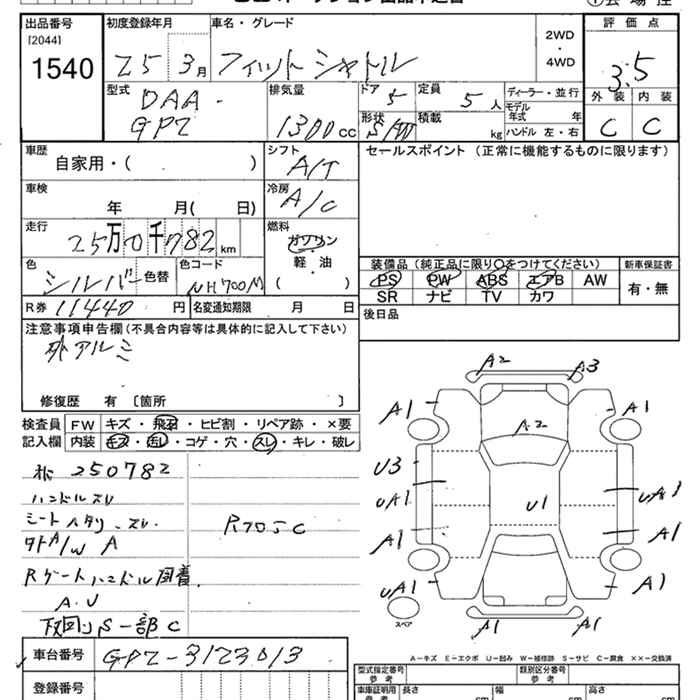 出品番号 [2044] 1540
初度登録年月 25 3月
車名・グレード フィットシャトル
2WD・4WD
評価点 3.5
外装 C 内装 C
型式 DAA-GP2
排気量 1300cc
ドア 5
定員 5人
形状 S/W
積載 kg
ディーラー・並行
モデル年式 年
ハンドル 左・右
車歴 自家用・( )
シフト A/T
セールスポイント (正常に機能するものに限ります)
車検 年 月( 日)
冷房 A/C
走行 25万0千782km
燃料 ガソリン 軽・油 ( )
色 シルバー 色替
色コード NH700M
装備品 (純正品に限り○をつけてください)
新車保証書 有・無
PS PW ABS エアB AW
SR ナビ TV カワ
R券 11440円
名変通知期限 月 日
後日品
注意事項申告欄 (不具合内容等は具体的に記入して下さい)
社外アルミ
修復歴 有 〔箇所 〕
検査員記入欄
FW キズ・飛石・ヒビ割・リペア跡・×要
内装 キズ・汚レ・コゲ・穴・スレ・キレ・破レ
250782
ハンドルスレ
シートヘタリ、スレ
外A/W A
R705C
Rゲートハンドル固着
A.U
下回りS一部C
A2
A3
A1
A1
A2
U3
UA1
U1
UA1
A1
A1
UA1
A1
スペア
A1
A1
A－キズ E－エクボ U－凹み W－補修跡 S－サビ C－腐食 ××－交換済
車台番号 GP2-3123013
登録番号
型式指定番号 参考
類別区分番号 参考
車庫証明用 参考
長さ cm
幅 cm
高さ cm